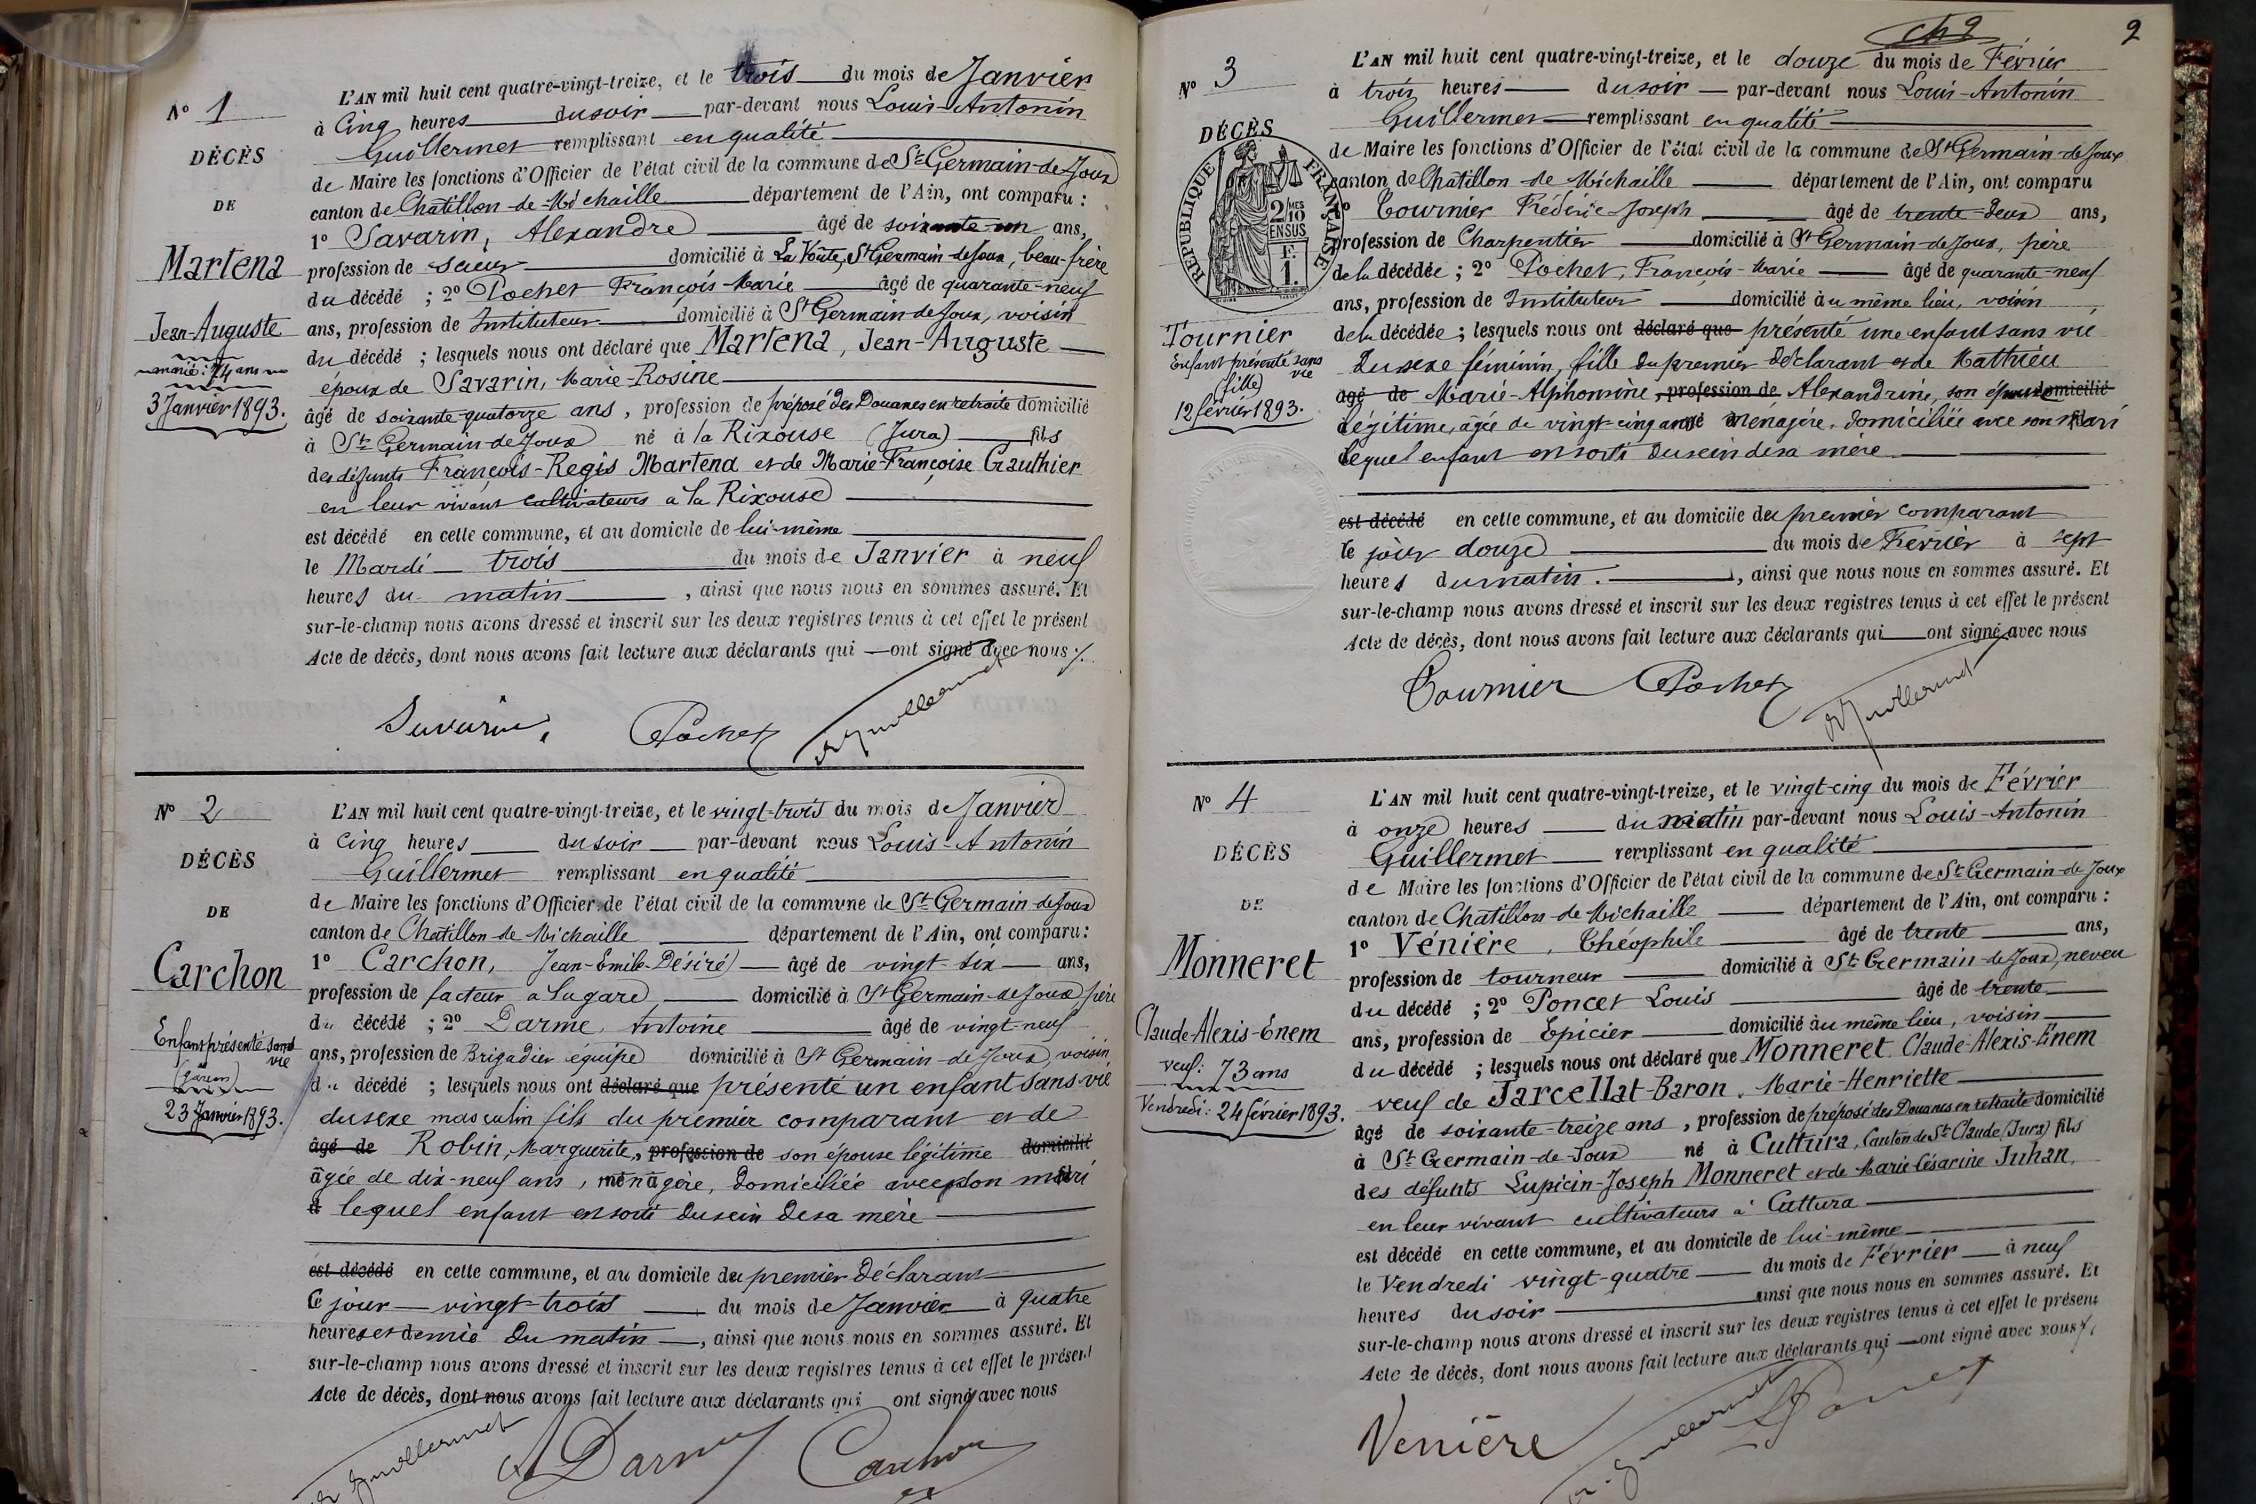 N° 1
DÉCÈS
DE
Martena
Jean-Auguste
marié: 74 ans
3 Janvier 1893.
L'AN mil huit cent quatre-vingt-treize, et le trois du mois de Janvier
à Cinq heures du soir par-devant nous Louis-Antonin
Guillermet remplissant en qualité
de Maire les fonctions d'Officier de l'état civil de la commune de St-Germain-de-Joux
canton de Châtillon-de-Michaille département de l'Ain, ont comparu :
1° Savarin, Alexandre âgé de soixante-un ans,
profession de domicilié à La Voûte, St Germain de Joux, beau-frère
du décédé ; 2° Pochet François-Marie âgé de quarante-neuf
ans, profession de Instituteur domicilié à St Germain de Joux, voisin
du décédé ; lesquels nous ont déclaré que Martena, Jean-Auguste
époux de Savarin, Marie-Rosine
âgé de soixante-quatorze ans, profession de préposé des Douanes en retraite domicilié
à St-Germain-de-Joux né à la Rixouse (Jura) fils
des défunts François-Regis Martena et de Marie-Françoise Gauthier
en leur vivant cultivateurs à la Rixouse
est décédé en cette commune, et au domicile de lui-même
le Mardi trois du mois de Janvier à neuf
heures du matin, ainsi que nous nous en sommes assuré. Et
sur-le-champ nous avons dressé et inscrit sur les deux registres tenus à cet effet le présent
Acte de décès, dont nous avons fait lecture aux déclarants qui ont signé avec nous
Savarin, Pochet Guillermet
N° 2
DÉCÈS
DE
Carchon
Enfant présenté sans
vie
(garçon)
23 Janvier 1893.
L'AN mil huit cent quatre-vingt-treize, et le vingt-trois du mois de Janvier
à Cinq heures du soir par-devant nous Louis-Antonin
Guillermet remplissant en qualité
de Maire les fonctions d'Officier de l'état civil de la commune de St-Germain-de-Joux
canton de Châtillon-de-Michaille département de l'Ain, ont comparu :
1° Carchon, Jean-Emile-Désiré âgé de vingt-six ans,
profession de facteur à la gare, domicilié à St Germain-de-Joux père
du décédé ; 2° Darme, Antoine âgé de vingt-neuf
ans, profession de Brigadier équipe domicilié à St Germain-de-Joux, voisin
du décédé ; lesquels nous ont déclaré que présenté un enfant sans vie
du sexe masculin fils du premier comparant et de
âgé de Robin, Marguerite, profession de son épouse légitime domicilié
âgée de dix-neuf ans, ménagère, domiciliée avec son mari
à lequel enfant est sorti du sein de sa mère
est décédé en cette commune, et au domicile du premier déclarant
le jour vingt-trois du mois de Janvier à quatre
heures et demie du matin, ainsi que nous nous en sommes assuré. Et
sur-le-champ nous avons dressé et inscrit sur les deux registres tenus à cet effet le présent
Acte de décès, dont nous avons fait lecture aux déclarants qui ont signé avec nous
Guillermet A Darme Carchon
2
N° 3
DÉCÈS
RÉPUBLIQUE FRANÇAISE
2/10 MES
EN SUS
F.
1.
Tournier
Enfant présenté sans
vie
(fille)
12 février 1893.
L'AN mil huit cent quatre-vingt-treize, et le douze du mois de Février
à trois heures du soir par-devant nous Louis-Antonin
Guillermet remplissant en qualité
de Maire les fonctions d'Officier de l'état civil de la commune de St Germain-de-Joux
canton de Châtillon-de-Michaille département de l'Ain, ont comparu
Tournier Fréderic Joseph âgé de trente-deux ans,
profession de Charpentier domicilié à St Germain-de-Joux, père
de la décédée ; 2° Pochet, François-Marie âgé de quarante-neuf
ans, profession de Instituteur domicilié au même lieu, voisin
de la décédée ; lesquels nous ont déclaré que présenté une enfant sans vie
du sexe féminin, fille du premier déclarant et de Mathieu
âgé de Marie-Alphonsine, profession de Alexandrine, son épouse domicilié
légitime, âgée de vingt-cinq ans né ménagère, domiciliée avec son mari
lequel enfant est sorti du sein de sa mère
est décédé en cette commune, et au domicile du premier comparant
le jour douze du mois de Février à sept
heures du matin, ainsi que nous nous en sommes assuré. Et
sur-le-champ nous avons dressé et inscrit sur les deux registres tenus à cet effet le présent
Acte de décès, dont nous avons fait lecture aux déclarants qui ont signé avec nous
Tournier Pochet Guillermet
N° 4
DÉCÈS
DE
Monneret
Claude-Alexis-Enem
veuf: 73 ans
Vendredi: 24 février 1893.
L'AN mil huit cent quatre-vingt-treize, et le vingt-cinq du mois de Février
à onze heures du matin par-devant nous Louis-Antonin
Guillermet remplissant en qualité
de Maire les fonctions d'Officier de l'état civil de la commune de St-Germain-de-Joux
canton de Châtillon-de-Michaille département de l'Ain, ont comparu :
1° Vénière, Théophile âgé de trente ans,
profession de tourneur domicilié à St-Germain-de-Joux, neveu
du décédé ; 2° Poncet Louis âgé de trente
ans, profession de Epicier domicilié au même lieu, voisin
du décédé ; lesquels nous ont déclaré que Monneret Claude-Alexis-Enem
veuf de Jarcellat-Baron, Marie-Henriette
âgé de soixante-treize ans, profession de préposé des Douanes en retraite domicilié
à St-Germain-de-Joux né à Cuttura, Canton de St-Claude (Jura) fils
des défunts Lupicin-Joseph Monneret et de Marie Césarine Juhan,
en leur vivant cultivateurs à Cuttura
est décédé en cette commune, et au domicile de lui-même
le Vendredi vingt-quatre du mois de Février à neuf
heures du soir ainsi que nous nous en sommes assuré. Et
sur-le-champ nous avons dressé et inscrit sur les deux registres tenus à cet effet le présent
Acte de décès, dont nous avons fait lecture aux déclarants qui ont signé avec nous
Venière Guillermet Poncet